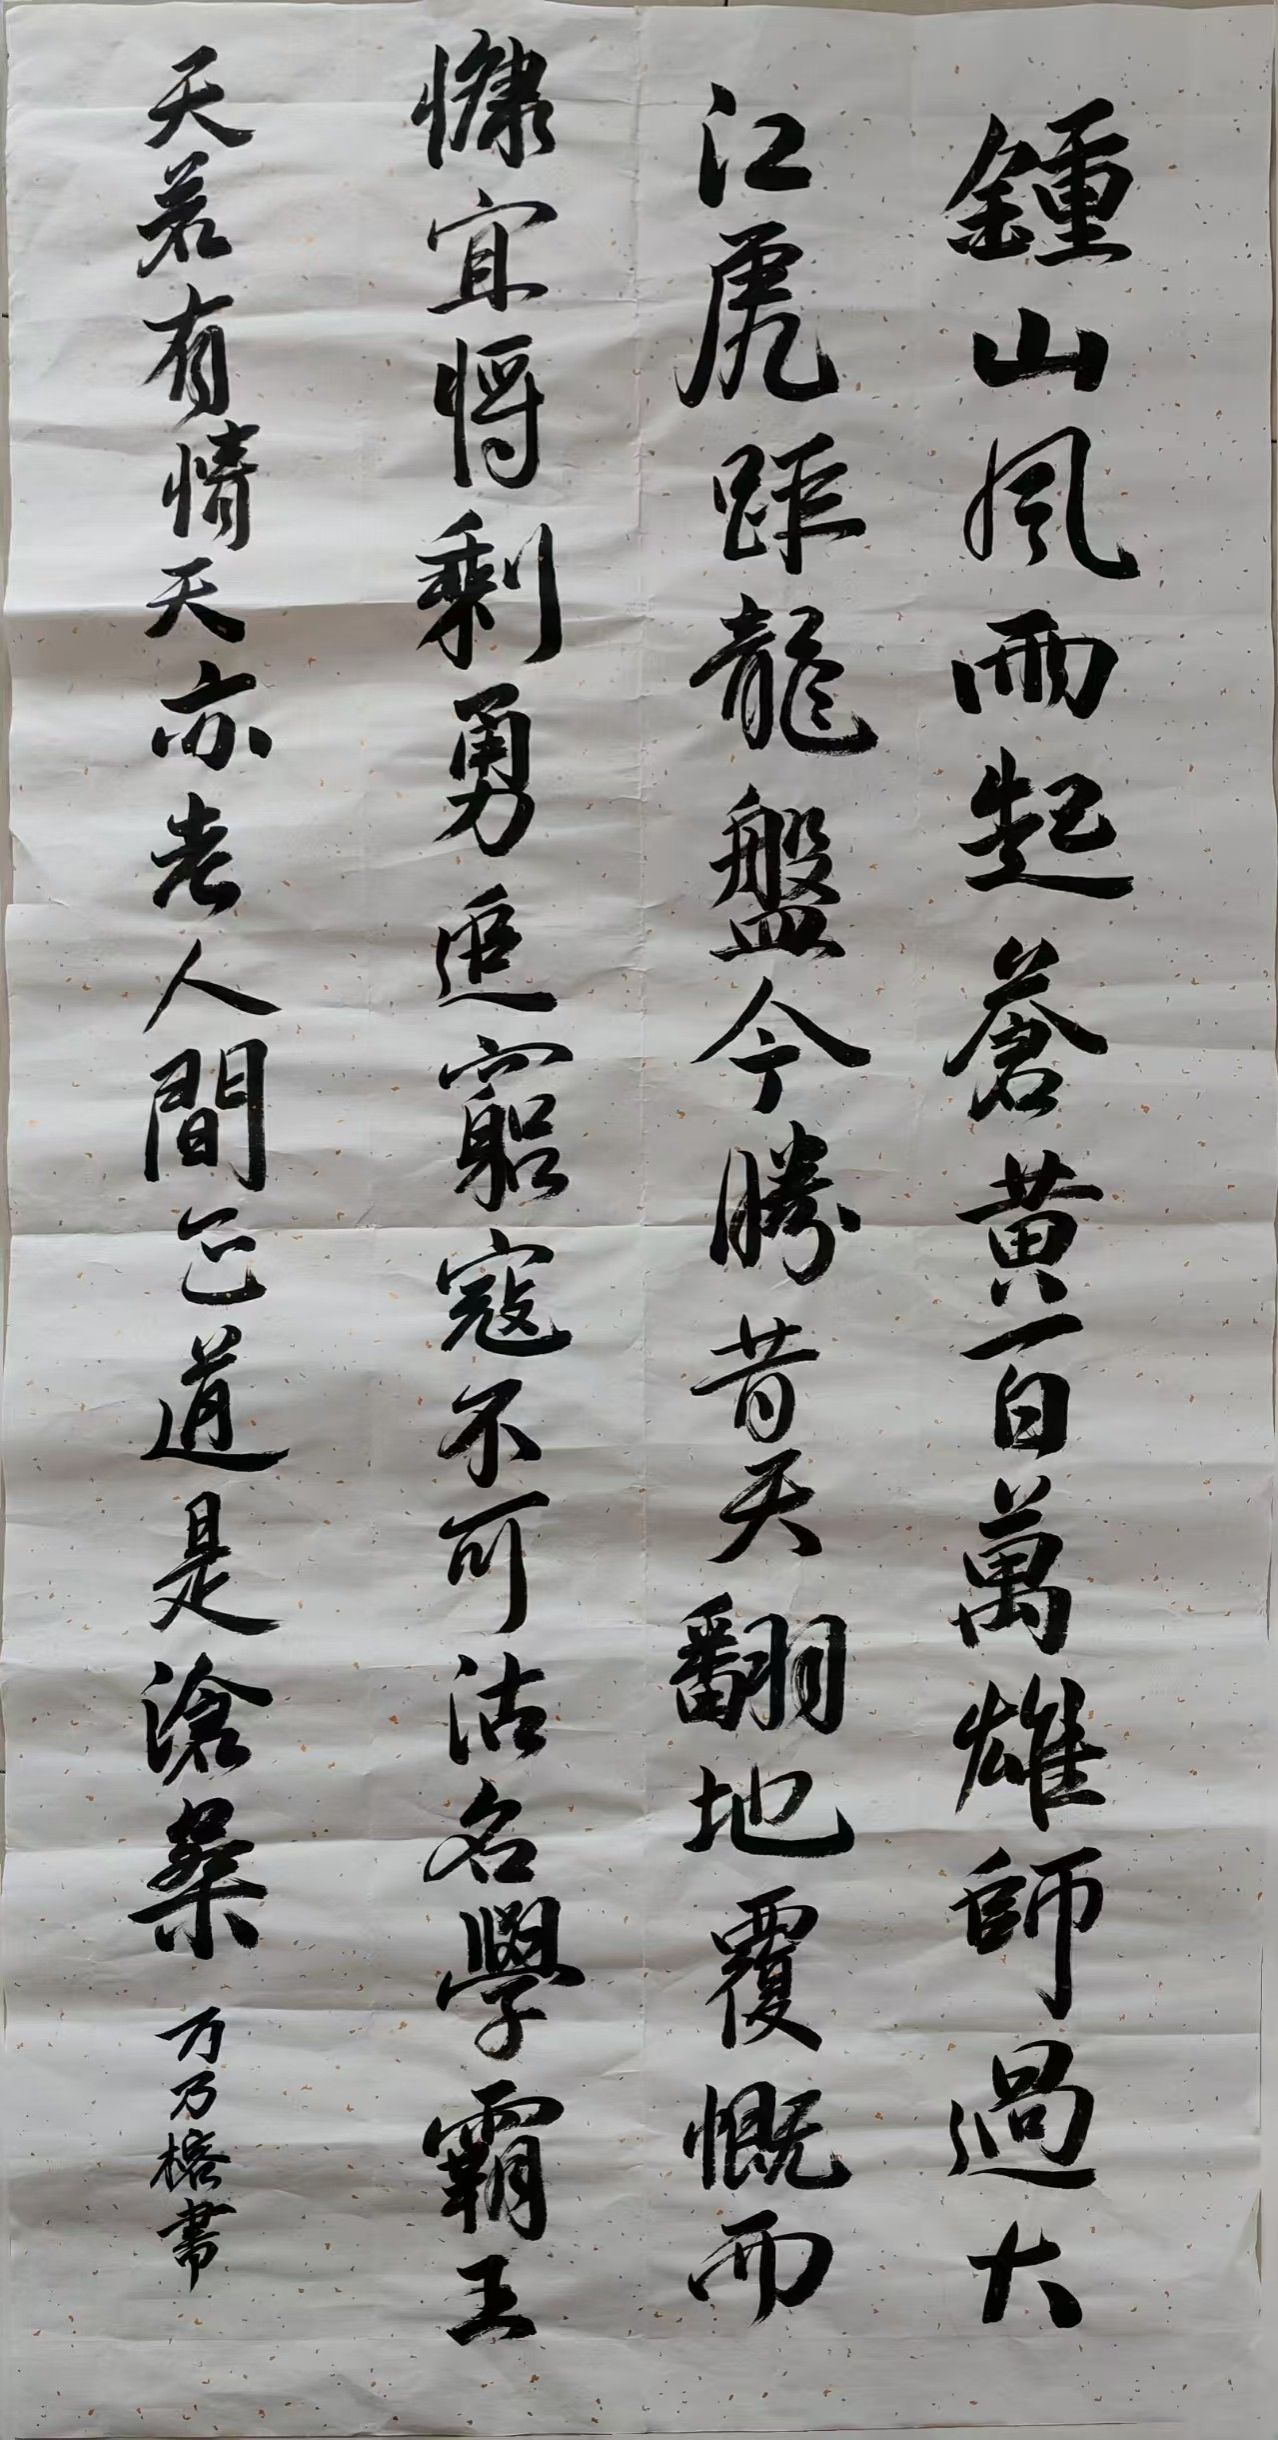 鍾山风雨起蒼黄百萬雄師過大
江虎踞龍盤今勝昔天翻地覆慨而
慷宜將剩勇追窮寇不可沽名學霸王
天若有情天亦老人間正道是滄桑
万乃榕書